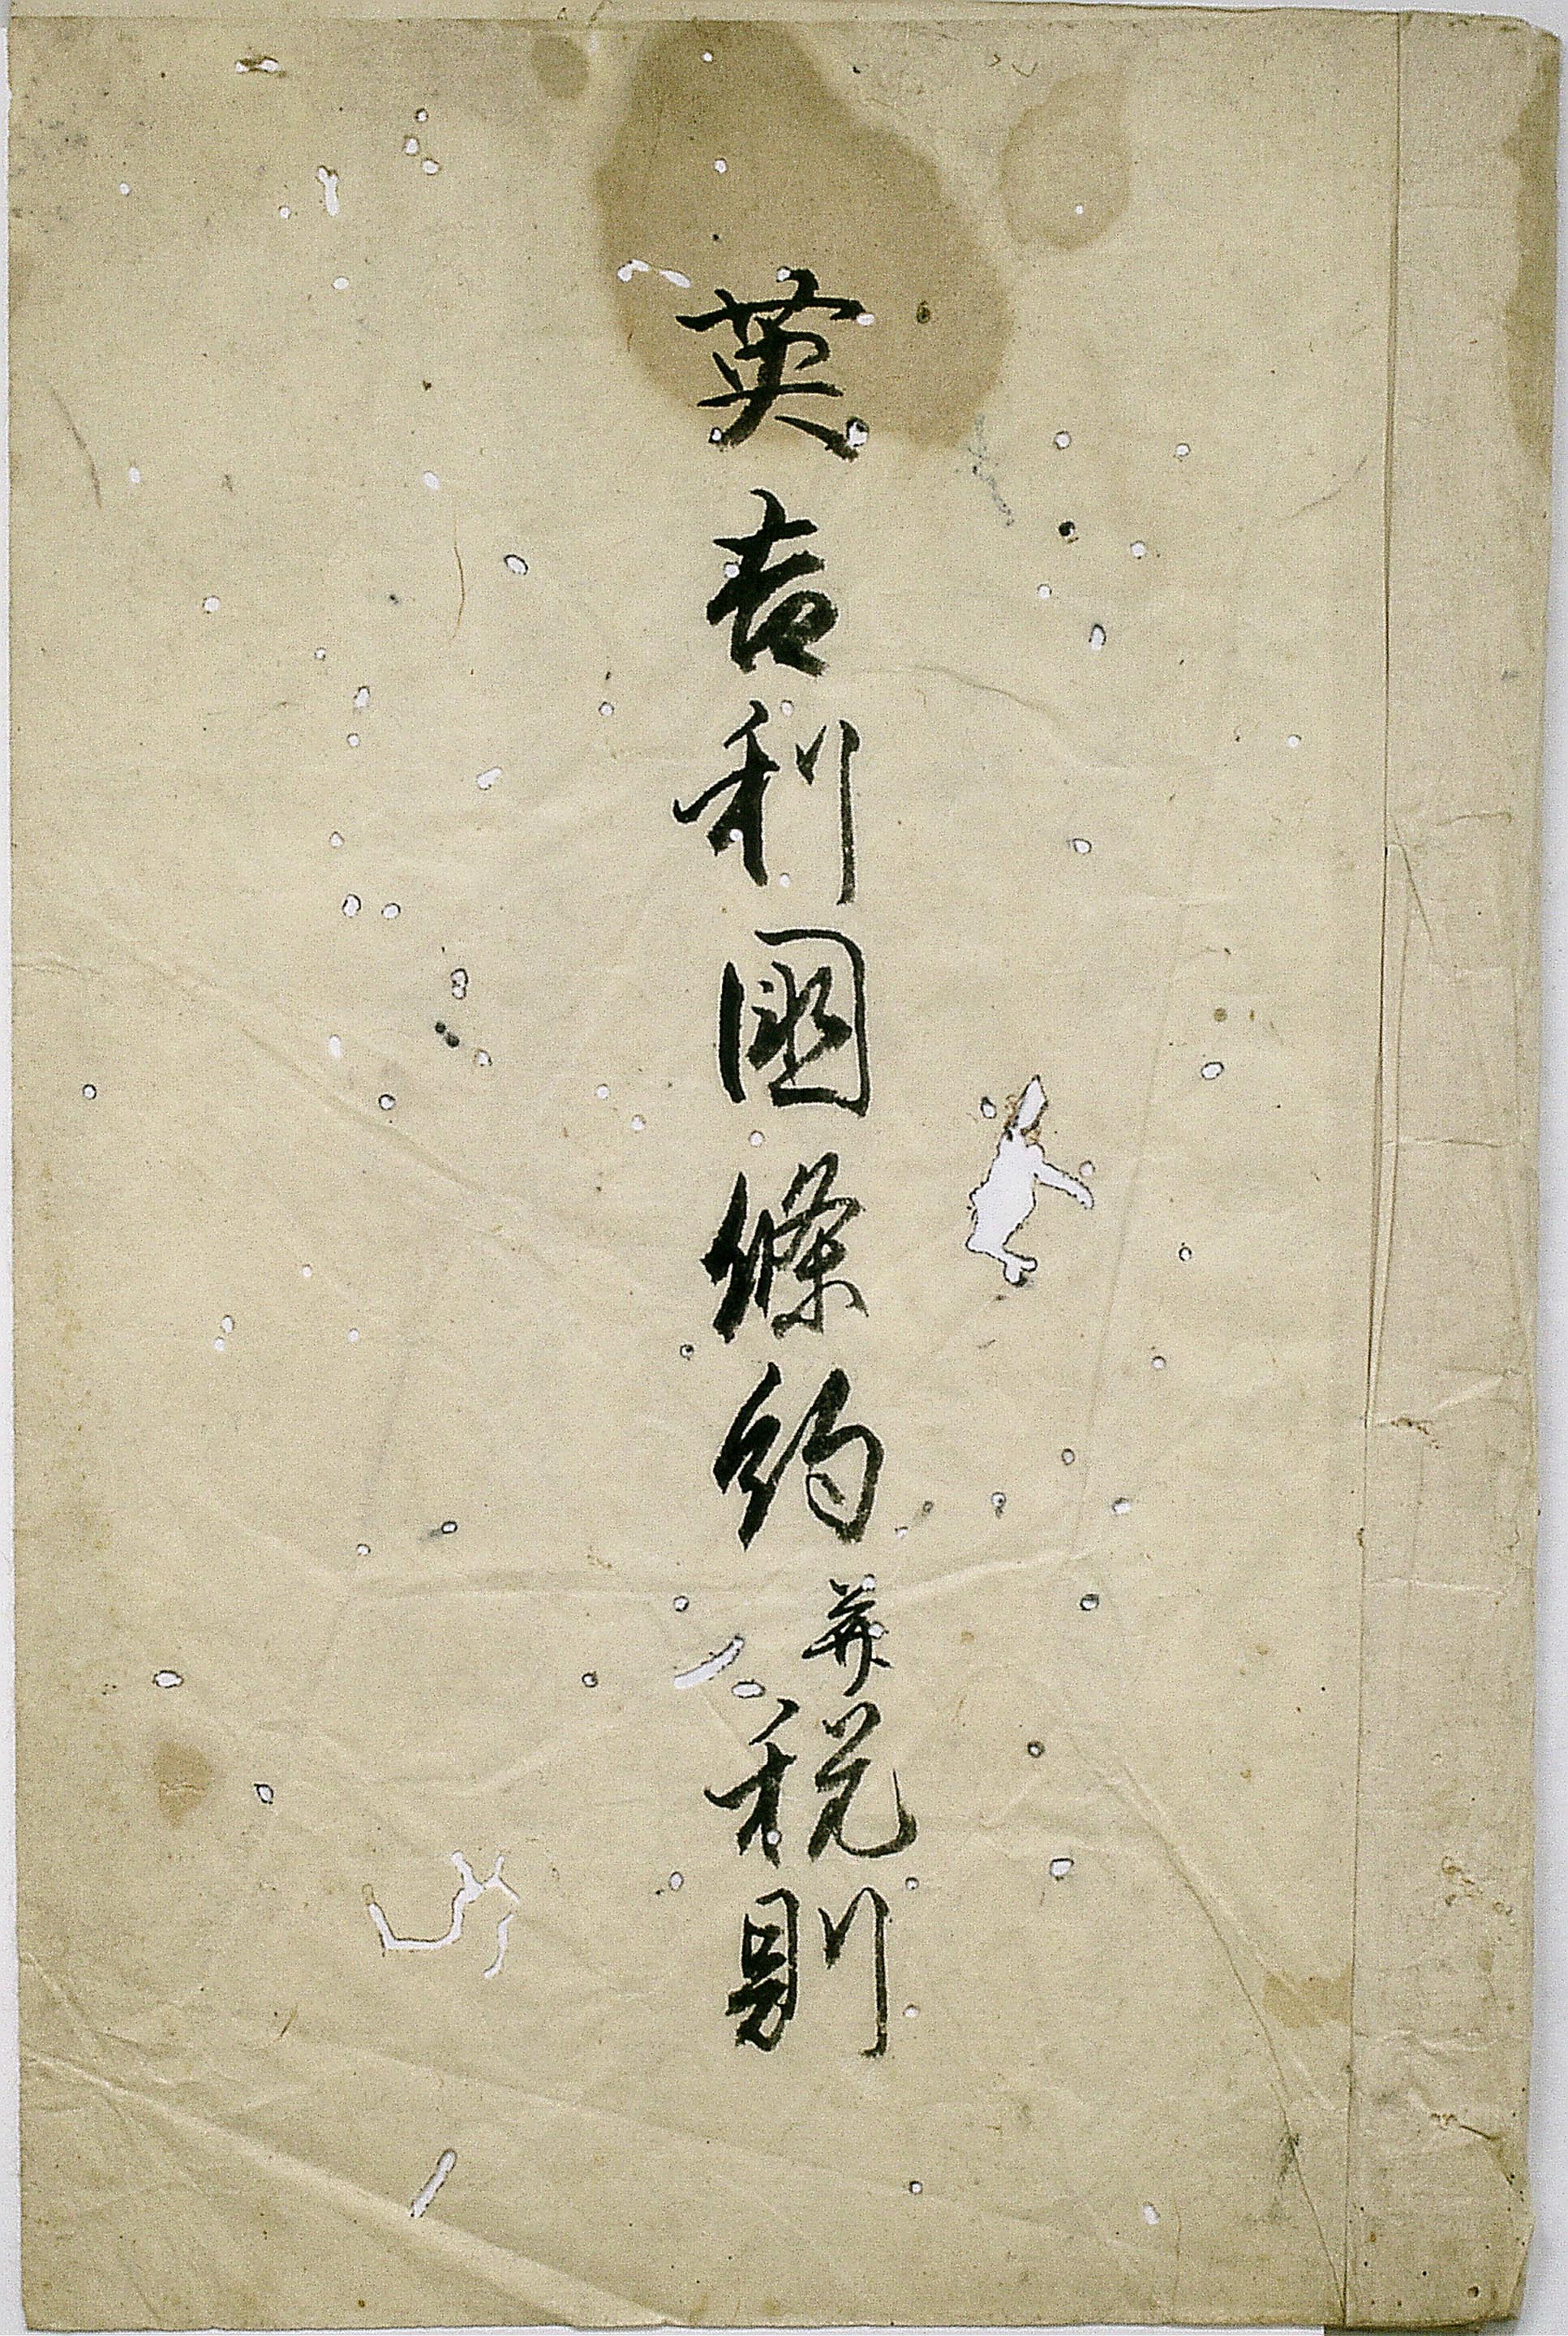 英吉利國條約并税則